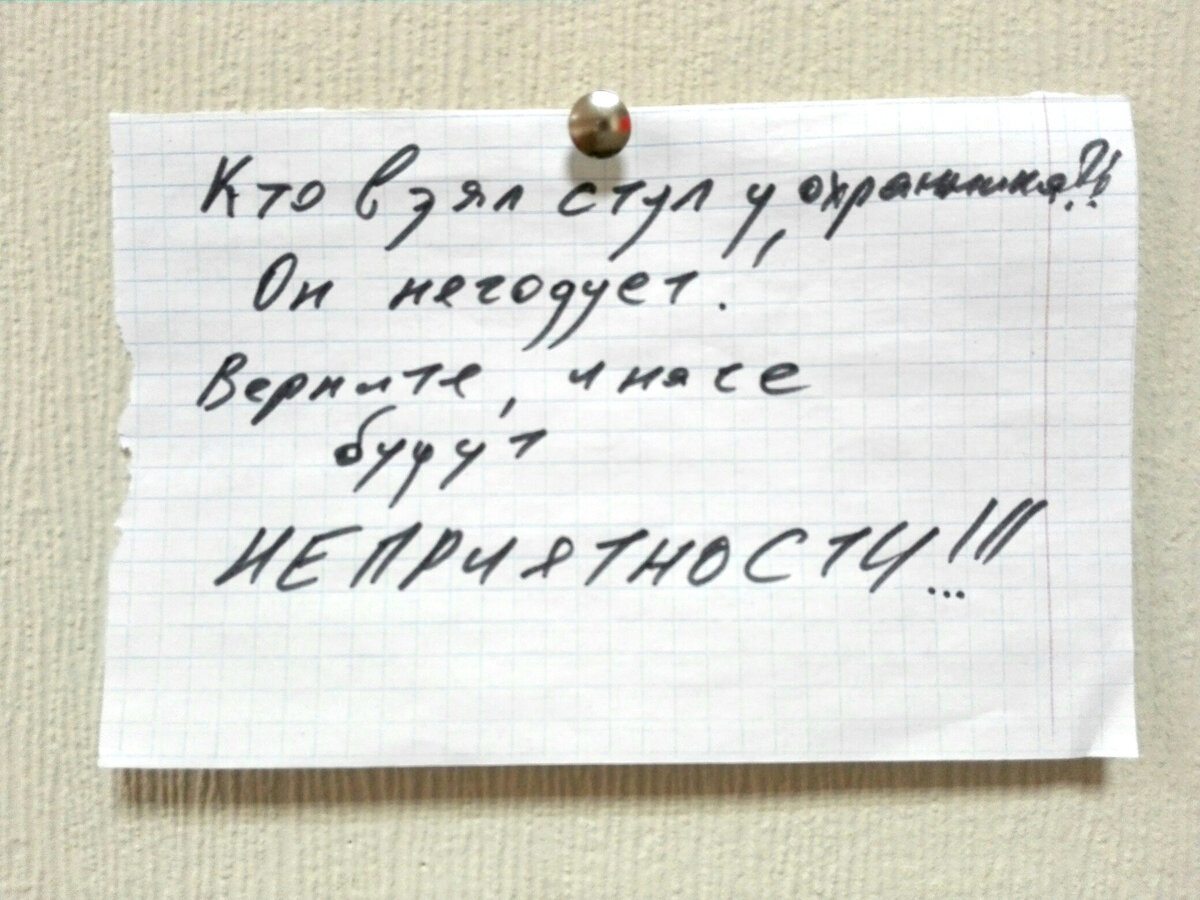 Кто взял стул у охранника?!
Он негодует!
Верните, иначе
будут
НЕПРИЯТНОСТИ!!!